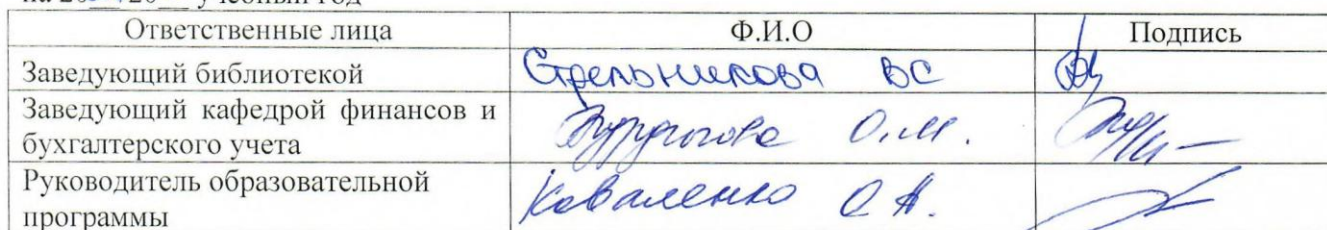 Ответственные лица Ф.И.О Подпись
Заведующий библиотекой Стрельникова ВС
Заведующий кафедрой финансов и
бухгалтерского учета О.М.
Руководитель образовательной
программы Коваленко О А.